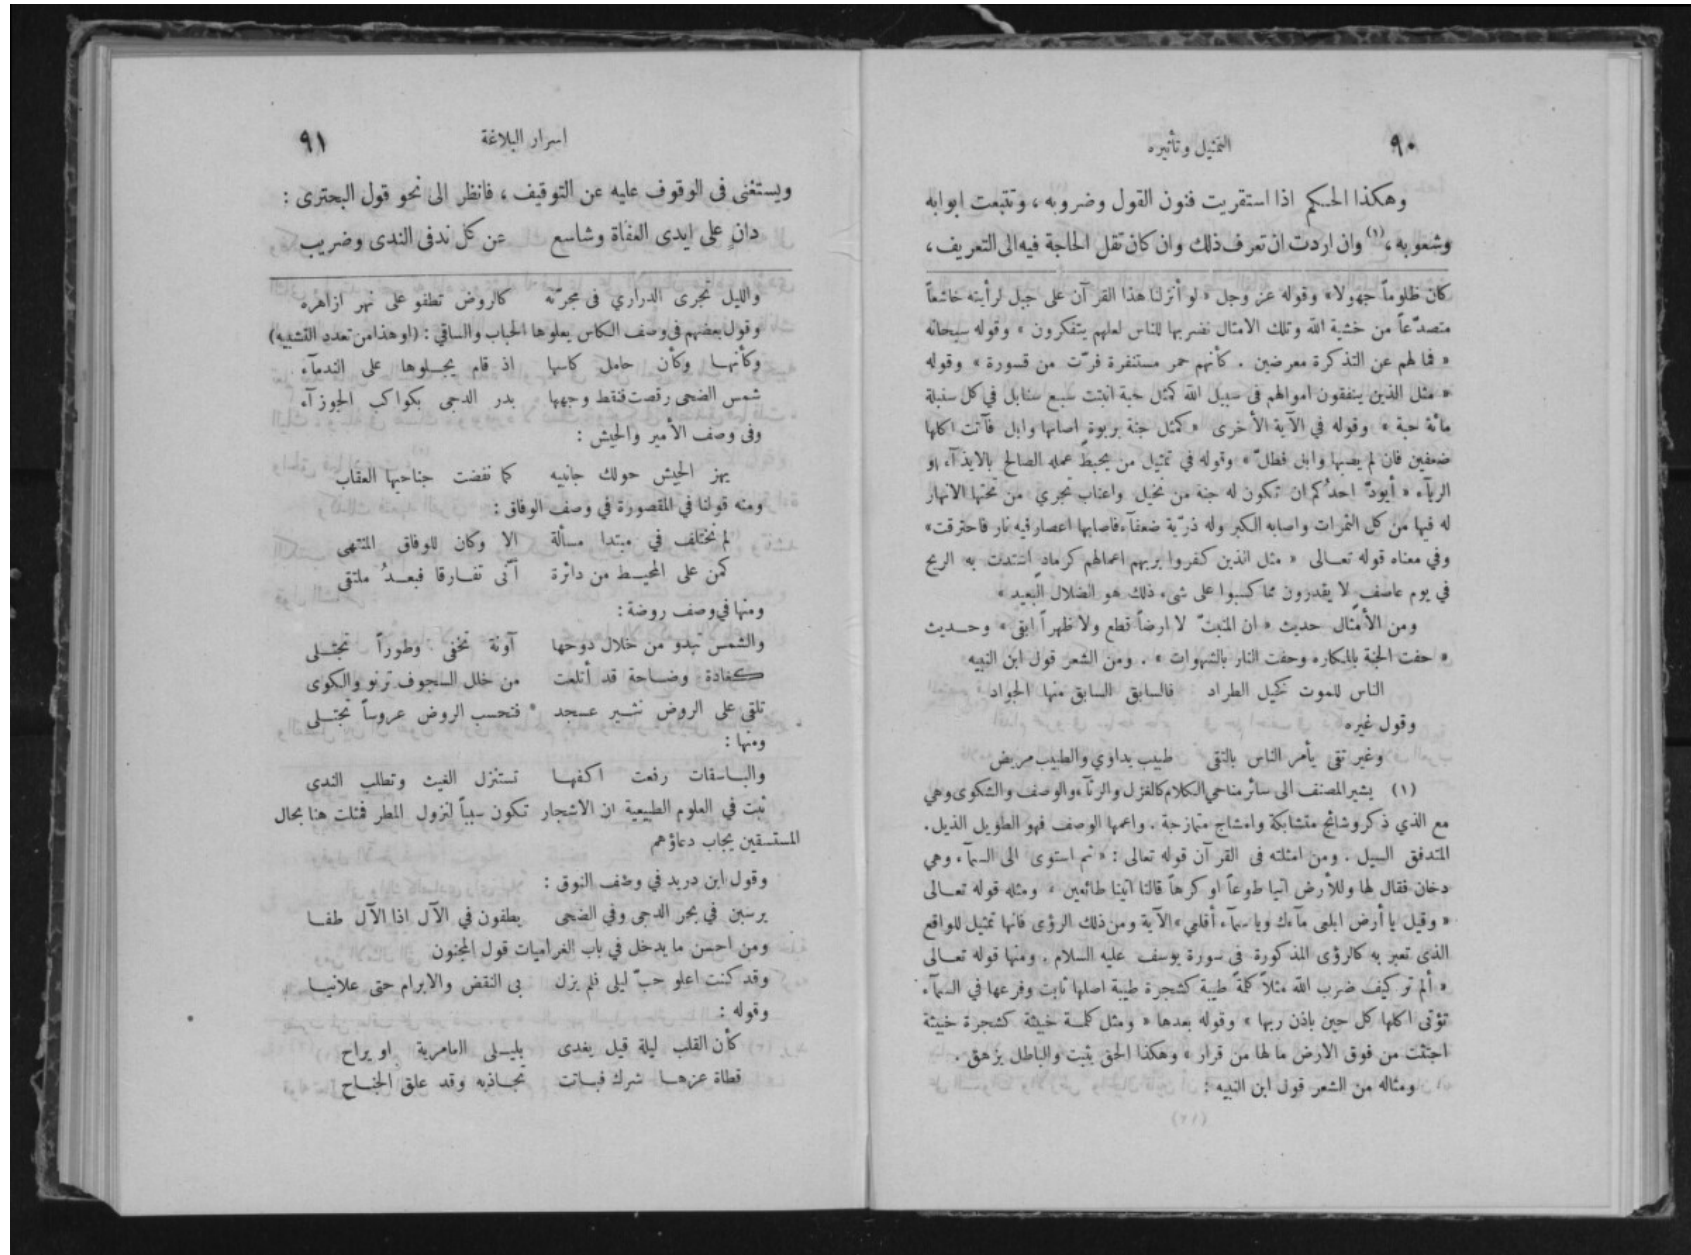 ٩٠
التمثيل وتأثيره
وهكذا الحكم اذا استقريت فنون القول وضروبه ، وتتبعت ابوابه
وشعوبه ،(١) وان اردت ان تعرف ذلك وان كان تقل الحاجة فيه الى التعريف ،
كان ظلوماً جهولا» وقوله عز وجل «لو أنزلنا هذا القرآن على جبل لرأيته خاشعاً
متصدّعاً من خشية الله وتلك الأمثال نضربها للناس لعلهم يتفكرون » وقوله سبحانه
« فما لهم عن التذكرة معرضين . كأنهم حمر مستنفرة فرّت من قسورة » وقوله
« مثل الذين ينفقون اموالهم فى سبيل الله كمثل حبة انبتت سبع سنابل في كل سنبلة
مائة حبة » وقوله في الآية الأخرى « كمثل جنة بربوةٍ اصابها وابل فآتت اكلها
ضعفين فان لم يصبها وابل فطلّ » وقوله في تمثيل من يحبط عمله الصالح بالايذآء او
الريآء « أيودّ احدُكم ان تكون له جنة من نخيل واعناب تجري من تحتها الانهار
له فيها من كل الثمرات واصابه الكبر وله ذرّية ضعفآء فاصابها اعصار فيه نار فاحترقت»
وفي معناه قوله تعالى « مثل الذين كفروا بربهم اعمالهم كرمادٍ اشتدت به الريح
في يوم عاصفٍ لا يقدرون مما كسبوا على شىء ذلك هو الضلال البعيد »
ومن الأمثال حديث « ان المنبتّ لا ارضاً قطع ولا ظهراً ابقى » وحديث
« حفت الجنة بالمكاره وحفت النار بالشهوات » . ومن الشعر قول ابن النبيه
الناس للموت كخيل الطراد فالسابق السابق منها الجواد
وقول غيره
وغير تقى يأمر الناس بالتقى طبيب يداوي والطبيب مريض
(١) يشير المصنف الى سائر مناحي الكلام كالغزل والرثآء والوصف والشكوى وهي
مع الذي ذكر وشائج متشابكة وامشاج متمازجة . واعمها الوصف فهو الطويل الذيل .
المتدفق السيل . ومن امثلته فى القرآن قوله تعالى : « ثم استوى الى السمآء وهي
دخان فقال لها وللأرض ائتيا طوعاً او كرهاً قالتا اتينا طائعين » ومثله قوله تعالى
« وقيل يا أرض ابلعى مآءك ويا سمآء أقلعي» الآية ومن ذلك الرؤى فانها تمثيل للواقع
الذى تعبر به كالرؤى المذكورة فى سورة يوسف عليه السلام . ومنها قوله تعالى
« ألم تر كيف ضرب الله مثلاً كلمةً طيبة كشجرة طيبة اصلها ثابت وفرعها في السمآء
تؤتى اكلها كل حين باذن ربها » وقوله بعدها « ومثل كلمة خبيثة كشجرة خبيثة
اجتثت من فوق الارض ما لها من قرار » وهكذا الحق يثبت والباطل يزهق .
ومثاله من الشعر قول ابن النبيه :
٩١
اسرار البلاغة
ويستغنى فى الوقوف عليه عن التوقيف ، فانظر الى نحو قول البحترى :
دانٍ على ايدى العفاة وشاسع عن كل ند فى الندى وضريب
والليل تجرى الدراري فى مجرّته كالروض تطفو على نهر ازاهره
وقول بعضهم فى وصف الكاس يعلوها الحباب والساقي : (او هذا من تعدد التشبيه)
وكأنها وكأن حامل كاسها اذ قام يجلوها على الندمآء
شمس الضحى رقصت فنقط وجهها بدر الدجى بكواكب الجوزآء
وفى وصف الأمير والجيش :
يهز الجيش حولك جانبيه كما نفضت جناحيها العقاب
ومنه قولنا في المقصورة في وصف الوفاق :
لم نختلف في مبتدا مسألة الا وكان للوفاق المنتهى
كمن على المحيط من دائرة أنّى تفارقا فبعدُ ملتقى
ومنها في وصف روضة :
والشمس تبدو من خلال دوحها آونة تخفى وطوراً تجتلى
كغادة وضاحة قد أتلعت من خلل السجوف ترنو والكوى
تلقي على الروض نثير عسجد فتحسب الروض عروساً تجتلى
ومنها :
والباسقات رفعت اكفها تستنزل الغيث وتطلب الندى
ثبت في العلوم الطبيعية ان الاشجار تكون سبباً لنزول المطر فمثلت هنا بحال
المستسقين يجاب دعاؤهم
وقول ابن دريد في وصف النوق :
يرسبن في بحر الدجى وفي الضحى يطفون في الآل اذا الآل طفا
ومن احسن ما يدخل في باب الغراميات قول المجنون
وقد كنت اعلو حبّ ليلى فلم يزل بى النقض والابرام حتى علانيا
وقوله :
كأن القلب ليلة قيل يغدى بليلى العامرية او يراح
قطاة عزها شرك فباتت تجاذبه وقد علق الجناح